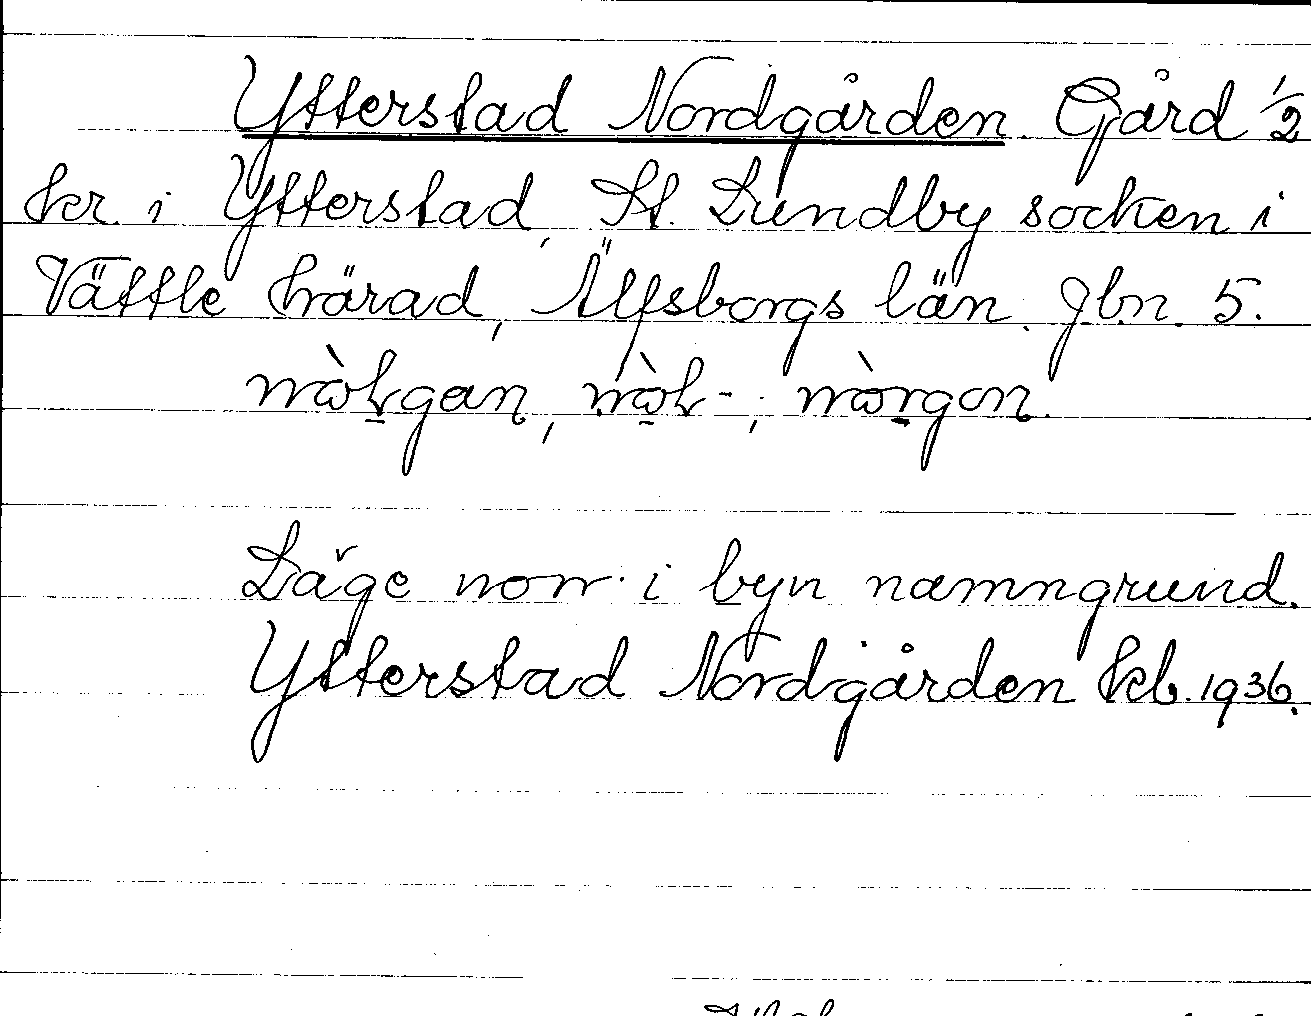 Ytterstad Nordgården Gård 1/2
kr. i Ytterstad, St. Lundby socken i
Vättle härad, Älfsborgs län. Jbn. 5.
Läge norr i byn namngrund.
Ytterstad Nordgården kb. 1936.